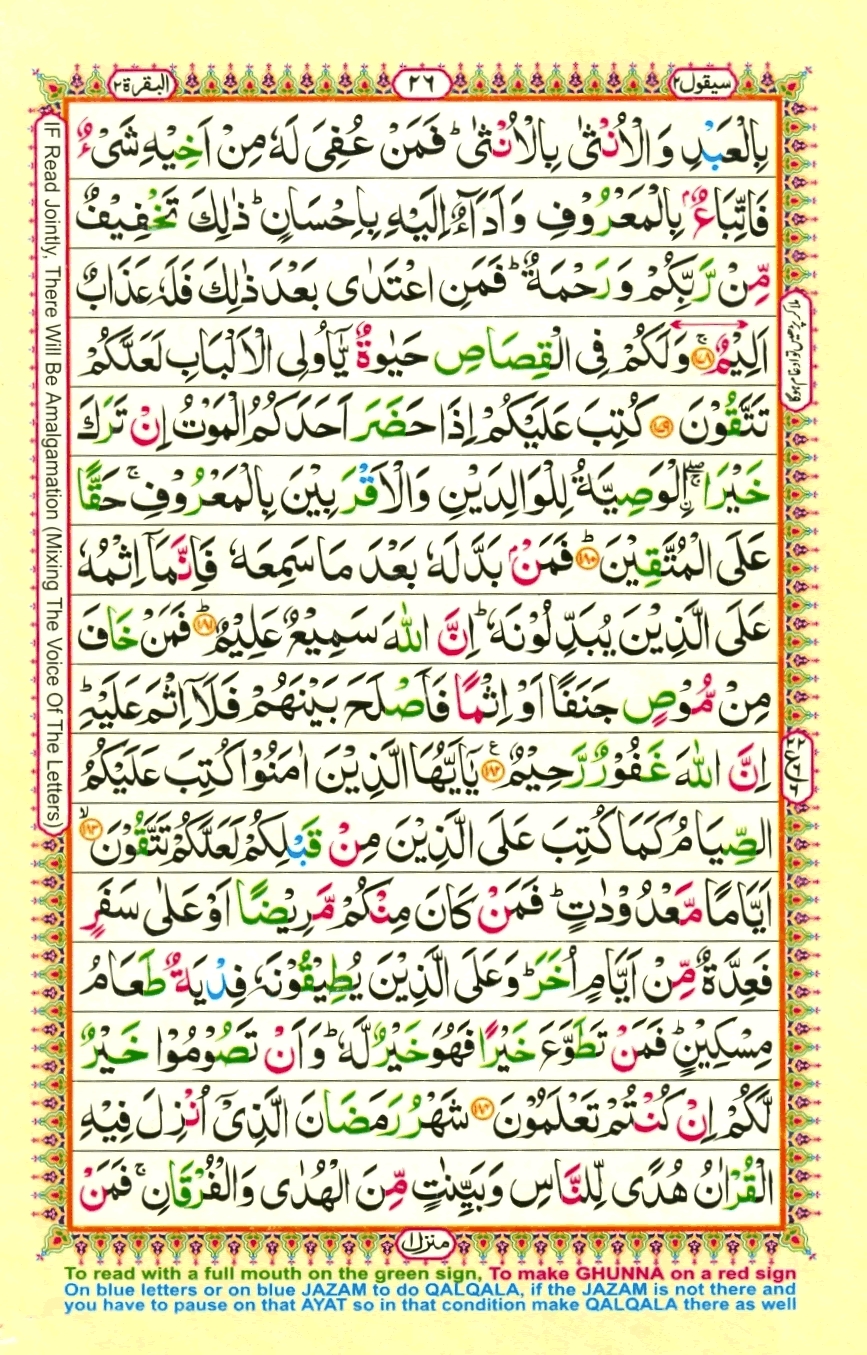 سيقول ٢
٢٦
البقرة ٢
بِالْعَبْدِ وَالْاُنْثٰى بِالْاُنْثٰىؕ فَمَنْ عُفِیَ لَهٗ مِنْ اَخِیْهِ شَیْءٌ
فَاتِّبَاعٌۢ بِالْمَعْرُوْفِ وَاَدَآءٌ اِلَیْهِ بِاِحْسَانٍؕ ذٰلِكَ تَخْفِیْفٌ
مِّنْ رَّبِّكُمْ وَرَحْمَةٌؕ فَمَنِ اعْتَدٰى بَعْدَ ذٰلِكَ فَلَهٗ عَذَابٌ
اَلِیْمٌۚ وَلَكُمْ فِی الْقِصَاصِ حَیٰوةٌ یّٰۤاُولِی الْاَلْبَابِ لَعَلَّكُمْ
تَتَّقُوْنَ كُتِبَ عَلَیْكُمْ اِذَا حَضَرَ اَحَدَكُمُ الْمَوْتُ اِنْ تَرَكَ
خَیْرَاۖۚ اۨلْوَصِیَّةُ لِلْوَالِدَیْنِ وَالْاَقْرَبِیْنَ بِالْمَعْرُوْفِۚ حَقًّا
عَلَى الْمُتَّقِیْنَؕ ١٨٠ فَمَنْۢ بَدَّلَهٗ بَعْدَ مَا سَمِعَهٗ فَاِنَّمَاۤ اِثْمُهٗ
عَلَى الَّذِیْنَ یُبَدِّلُوْنَهٗؕ اِنَّ اللّٰهَ سَمِیْعٌ عَلِیْمٌؕ ١٨١ فَمَنْ خَافَ
مِنْ مُّوْصٍ جَنَفًا اَوْ اِثْمًا فَاَصْلَحَ بَیْنَهُمْ فَلَاۤ اِثْمَ عَلَیْهِؕ
اِنَّ اللّٰهَ غَفُوْرٌ رَّحِیْمٌ ١٨٢ ع یٰۤاَیُّهَا الَّذِیْنَ اٰمَنُوْا كُتِبَ عَلَیْكُمُ
الصِّیَامُ كَمَا كُتِبَ عَلَى الَّذِیْنَ مِنْ قَبْلِكُمْ لَعَلَّكُمْ تَتَّقُوْنَۙ ١٨٣
اَیَّامًا مَّعْدُوْدٰتٍؕ فَمَنْ كَانَ مِنْكُمْ مَّرِیْضًا اَوْ عَلٰى سَفَرٍ
فَعِدَّةٌ مِّنْ اَیَّامٍ اُخَرَؕ وَعَلَى الَّذِیْنَ یُطِیْقُوْنَهٗ فِدْیَةٌ طَعَامُ
مِسْكِیْنٍؕ فَمَنْ تَطَوَّعَ خَیْرًا فَهُوَ خَیْرٌ لَّهٗؕ وَاَنْ تَصُوْمُوْا خَیْرٌ
لَّكُمْ اِنْ كُنْتُمْ تَعْلَمُوْنَ ١٨٤ شَهْرُ رَمَضَانَ الَّذِیْۤ اُنْزِلَ فِیْهِ
الْقُرْاٰنُ هُدًى لِّلنَّاسِ وَبَیِّنٰتٍ مِّنَ الْهُدٰى وَالْفُرْقَانِۚ فَمَنْ
منزل ١
IF Read Jointly, There Will Be Amalgamation (Mixing The Voice Of The Letters)
To read with a full mouth on the green sign, To make GHUNNA on a red sign
On blue letters or on blue JAZAM to do QALQALA, if the JAZAM is not there and
you have to pause on that AYAT so in that condition make QALQALA there as well